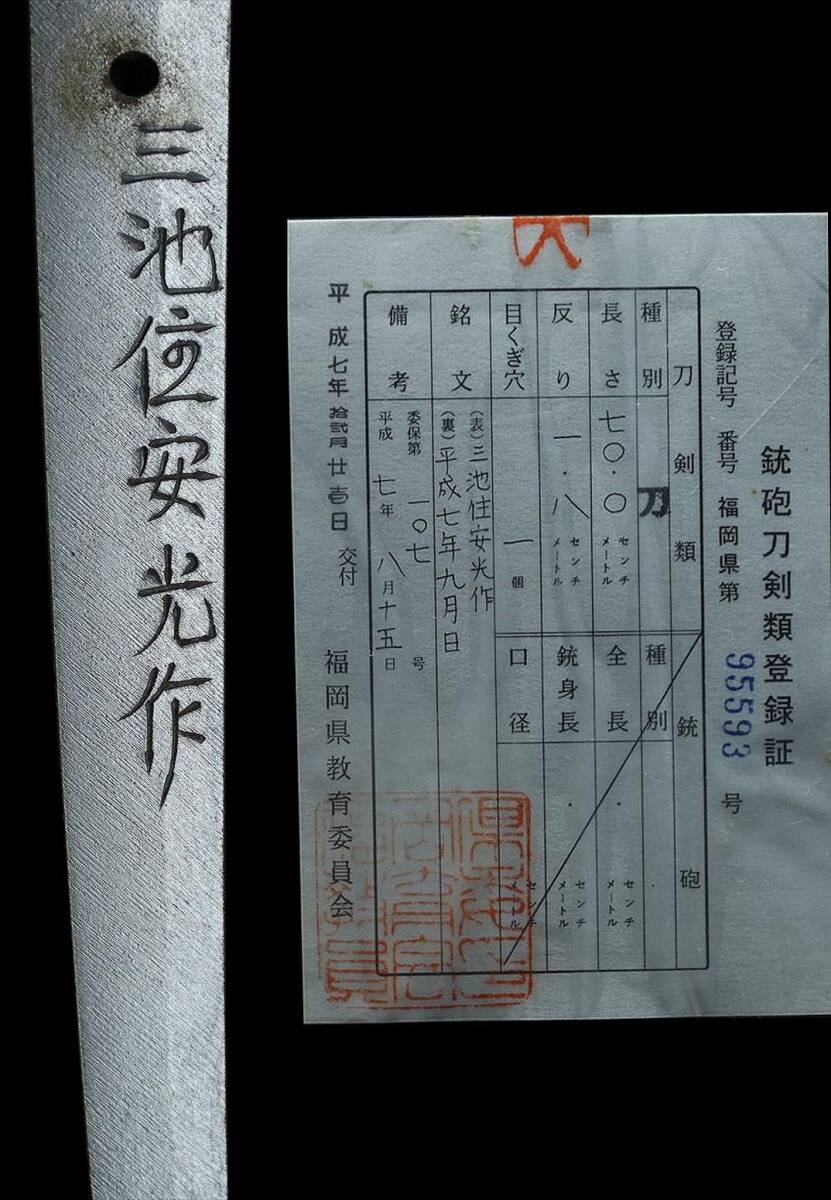 三池住安光作
大
銃砲刀剣類登録証
登録記号 番号 福岡県第 95593 号
刀剣類
種別 刀
長さ 七〇.〇 センチメートル
反り 一.八 センチメートル
目くぎ穴 一 個
銘文 (表)三池住安光作
(裏)平成七年九月日
備考 委保第 一〇七 号
平成 七年 八月十五日
銃砲
種別 .
全長 . センチメートル
銃身長 . センチメートル
口径 センチメートル
平成七年拾弐月廿壱日 交付 福岡県教育委員会